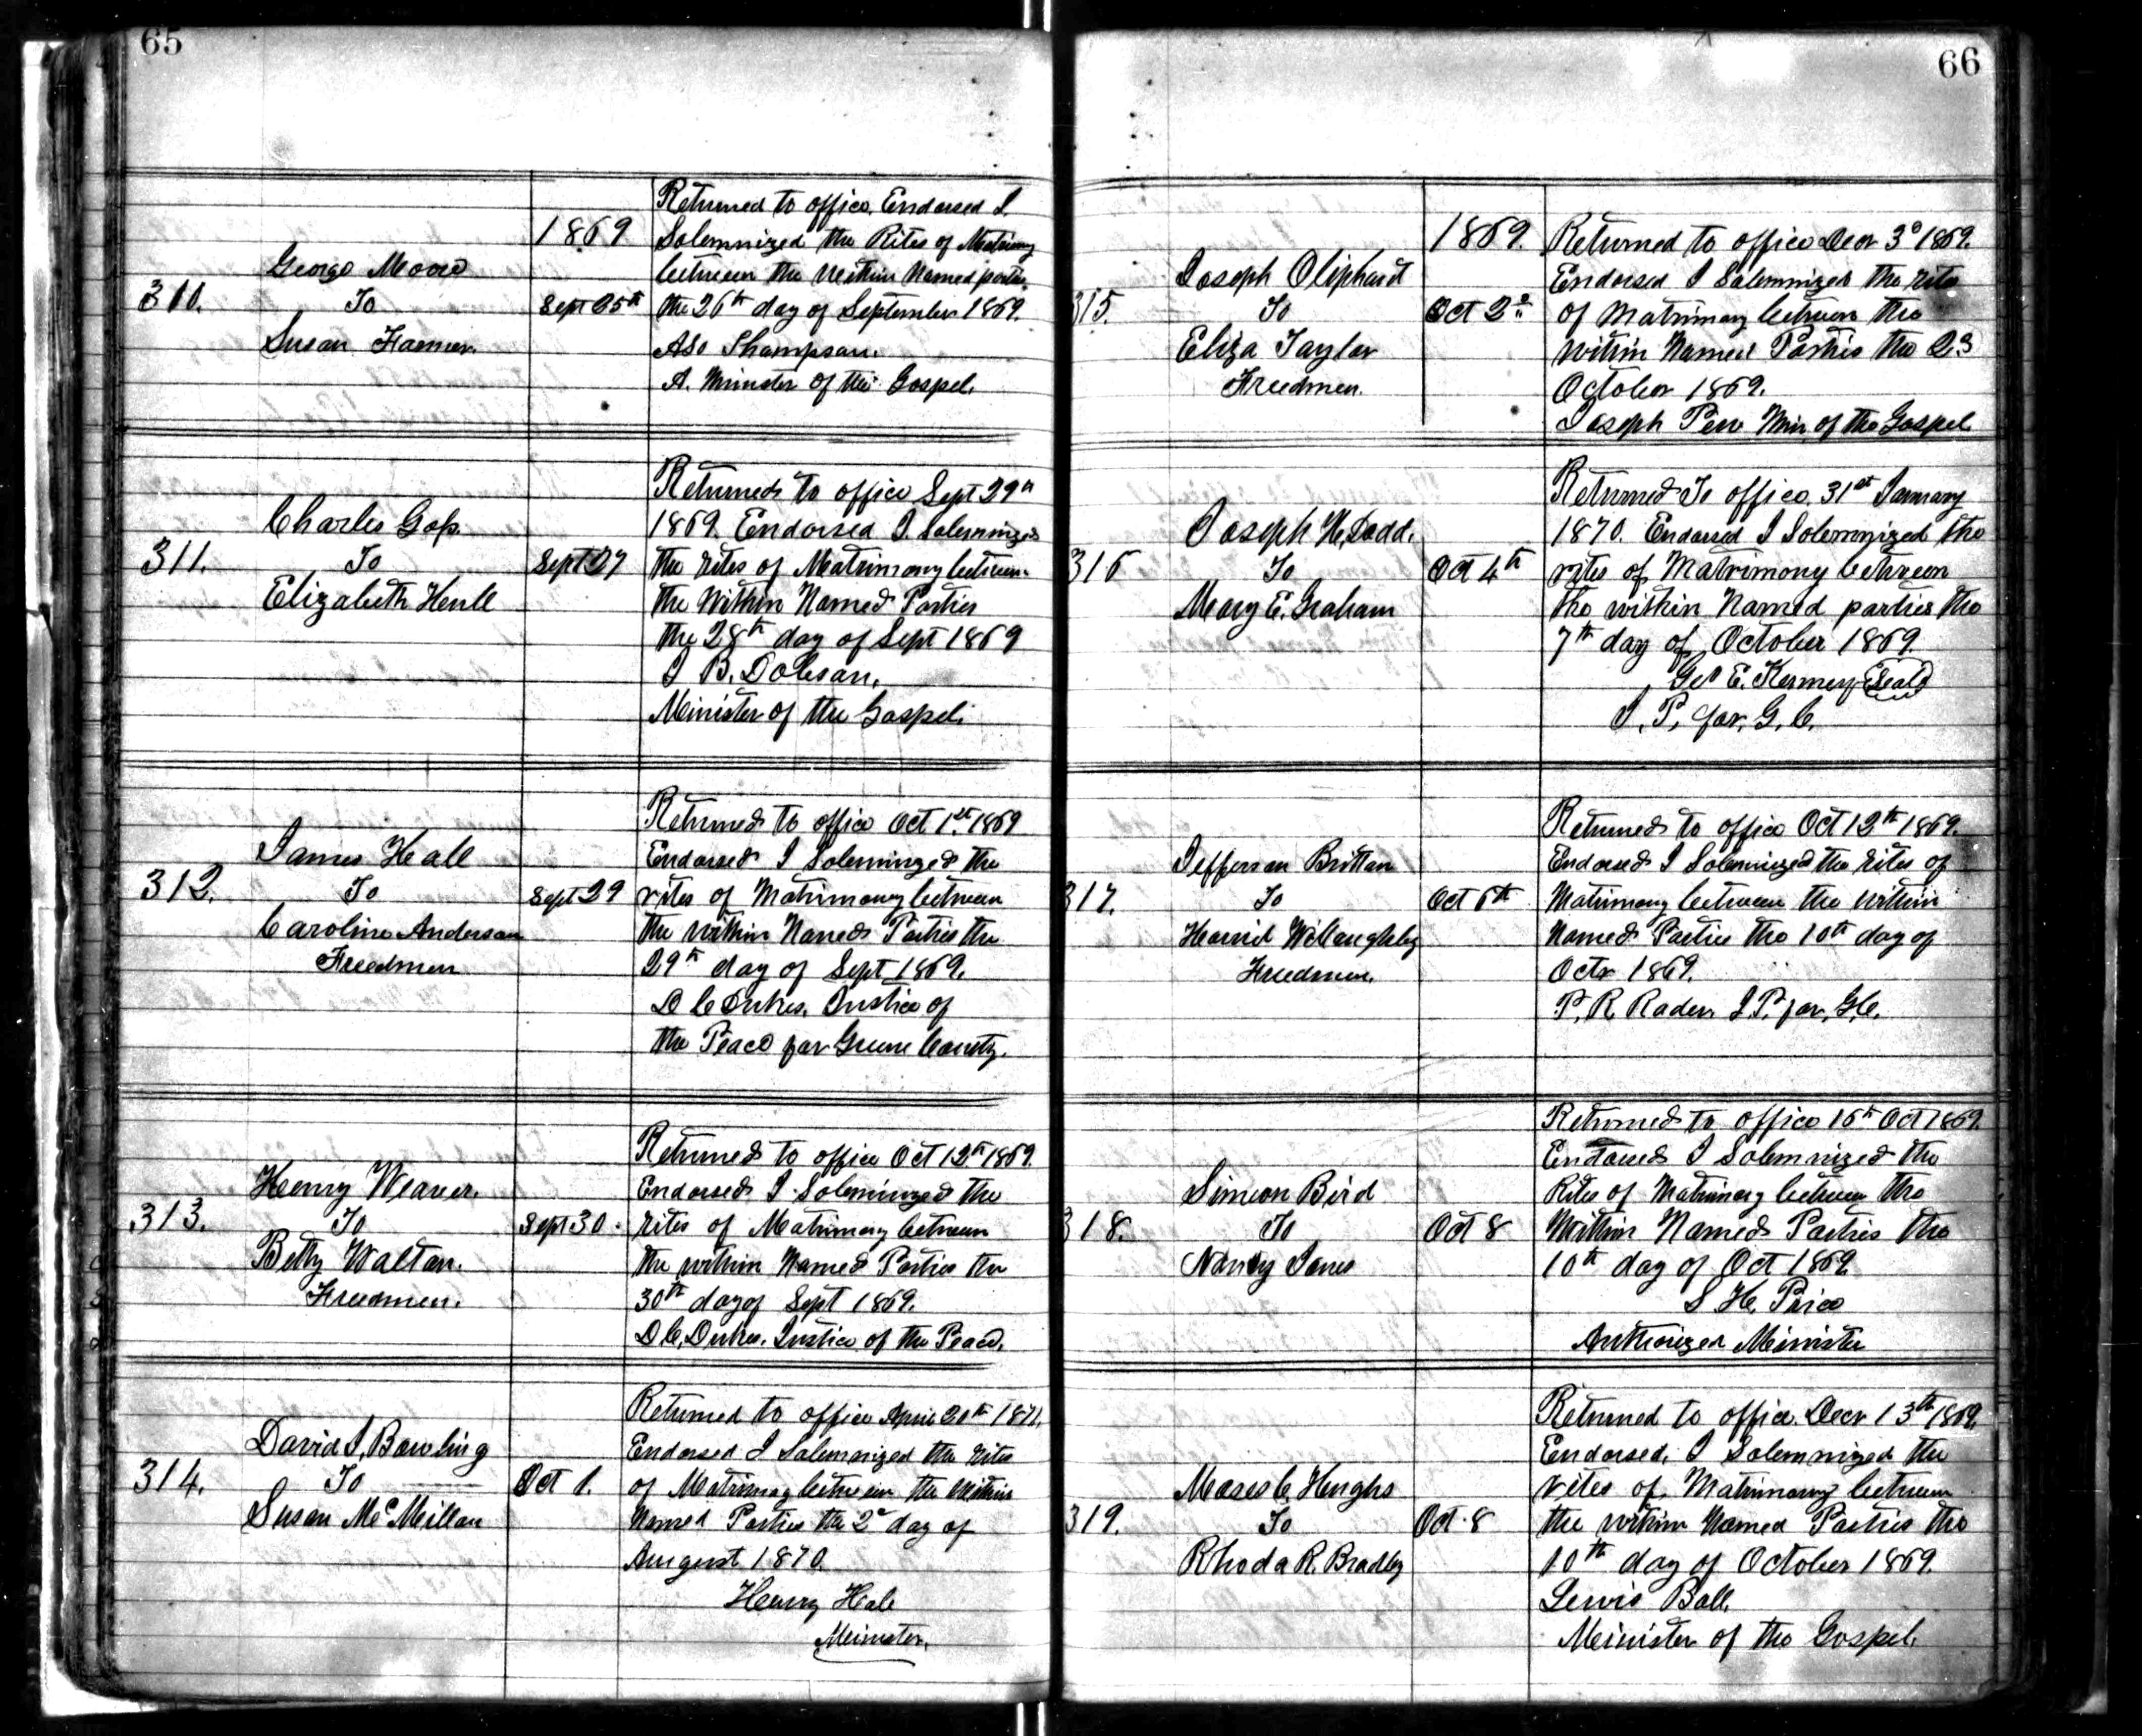 65
1869
George Moore
310.
To
Sept 25th
Susan Farner.
Returned to office. Endorsed I.
Solemnized the Rites of Matrimony
between the Within Named parties
the 26th day of September 1869.
Minister of the Gospel.
Charles Gop.
311.
To
Sept 27
Elizabeth Henll
Returned to office Sept 29th
1869. Endorsed I. Solemnized
the rites of Matrimony between
the Within Named Parties
the 28th day of Sept 1869
J B. Dobson.
Minister of the Gospel.
James Hall
312.
To
Sept 29
Caroline Anderson
Freedmen
Returned to office Oct 1st 1869
Endorsed I Solemnized the
rites of Matrimony between
the within Named Parties the
29th day of Sept 1869.
D C Dukes. Justice of
the Peace for Greene County.
Henry Weaver.
313.
To
Sept 30.
Betty Walton.
Freedmen.
Returned to office Oct 12th 1869.
Endorsed I Solemnized the
rites of Matrimony between
the within Named Parties the
30th day of Sept 1869.
D C. Dukes. Justice of the Peace.
David J. Bowling
314.
To
Oct 1.
Susan McMillan
Returned to office April 20th 1871.
Endorsed I Solemnized the rites
of Matrimony between the within
Named Parties the 2d day of
August 1870.
Henry Hale
Minister.
66
1869.
Joseph Oliphant
315.
To
Oct 2d
Eliza Taylor
Freedmen.
Returned to office Decr 3d 1869.
Endorsed I Solemnized the rites
of Matrimony between the
within Named Parties the 23
October 1869.
Joseph Pew Min of the Gospel
Joseph W. Dodd.
316
To
Oct 4th
Mary E. Graham
Returned To office. 31st January
1870. Endorsed I Solemnized the
rites of Matrimony between
the within Named parties the
7th day of October 1869.
Geo E. Kenney (Seal)
J. P. for. G. C.
Jefferson Brittan
317.
To
Oct 6th
Harriet Willaughby
Freedmen.
Returned to office Oct 12th 1869.
Endorsed I Solemnized the rites of
Matrimony between the within
Named Parties the 10th day of
Octr 1869.
P. R. Rader. J. P. for, G. C.
Simeon Bird
318.
To
Oct 8
Nancy Jones
Returned to office 16th Oct 1869.
Endorsed I Solemnized the
Rites of Matrimony between the
Within Named Parties the
10th day of Oct 1869
S H. Price
Authorized Minister
Moses C. Hughs
319.
To
Oct. 8
Rhoda R. Bradley
Returned to office. Decr 13th 1869.
Endorsed, I Solemnized the
rites of Matrimony between
the within Named Parties the
10th day of October 1869.
Lewis Ball.
Minister of the Gospel.